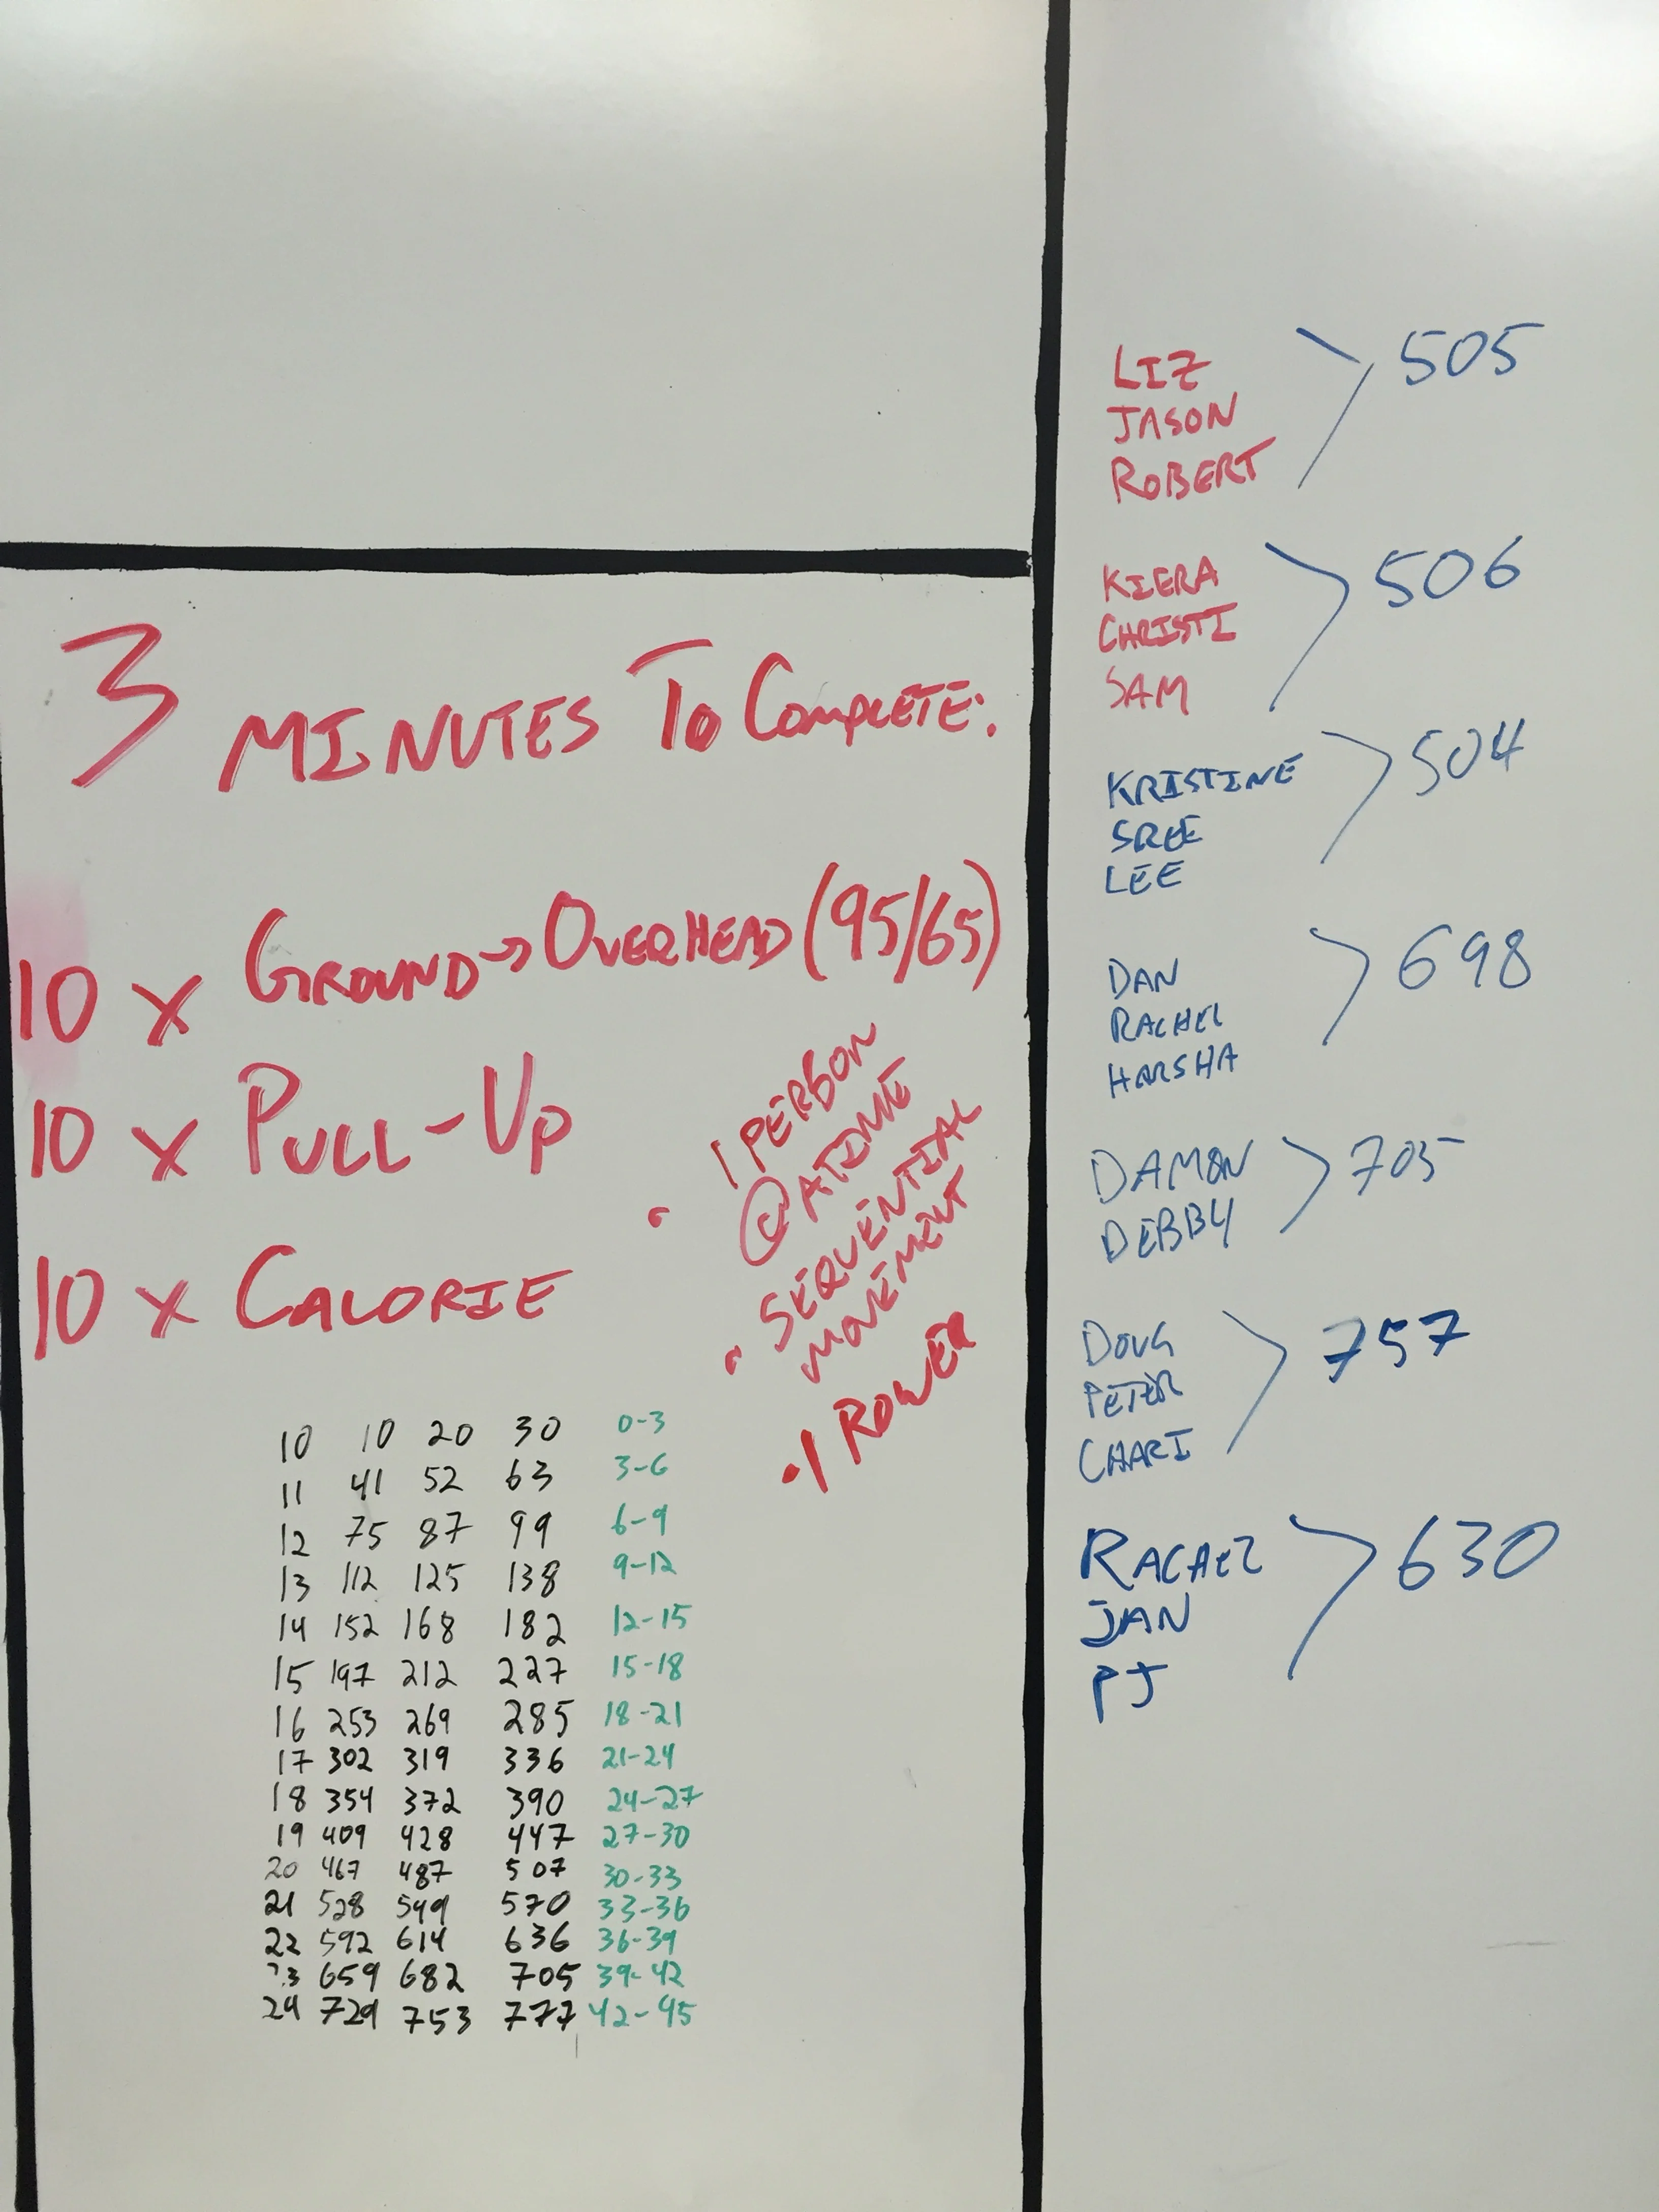 3 MINUTES TO COMPLETE:
10 x GROUND→OVERHEAD (95/65)
10 x PULL-UP
10 x CALORIE
• 1 PERSON
@ A TIME
• SEQUENTIAL
MOVEMENT
• 1 ROWER
10 10 20 30 0-3
11 41 52 63 3-6
12 75 87 99 6-9
13 112 125 138 9-12
14 152 168 182 12-15
15 197 212 227 15-18
16 253 269 285 18-21
17 302 319 336 21-24
18 354 372 390 24-27
19 409 428 447 27-30
20 467 487 507 30-33
21 528 549 570 33-36
22 592 614 636 36-39
23 659 682 705 39-42
24 729 753 777 42-45
LIZ
JASON
ROBERT
505
KIERA
CHRISTI
SAM
506
KRISTINE
SREE
LEE
504
DAN
RACHEL
HARSHA
698
DAMON
DEBBY
705
DOUG
PETER
CHARI
757
RACHEL
JAN
PJ
630